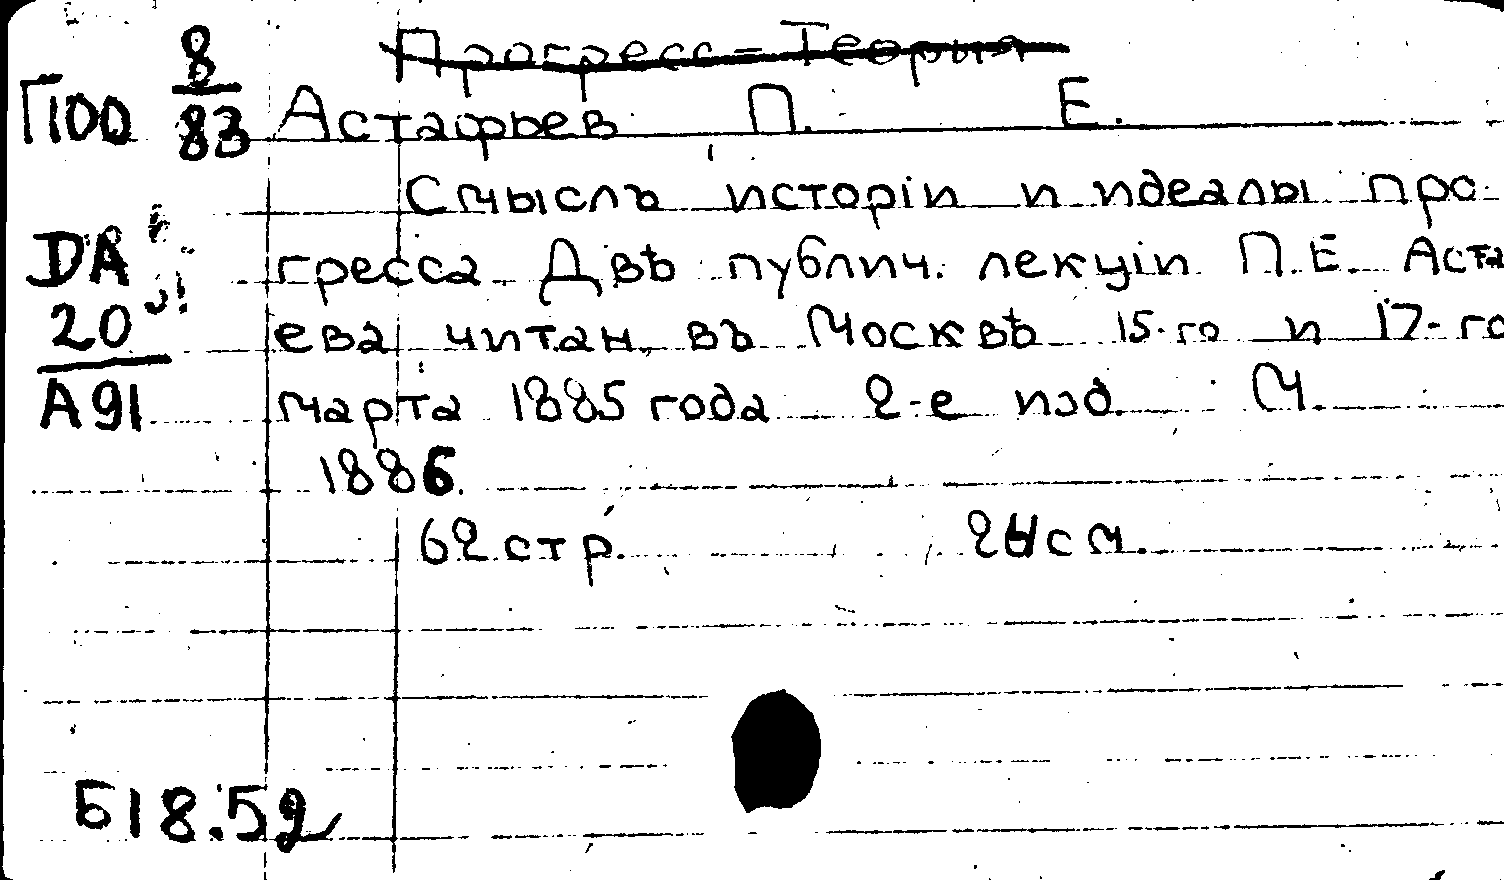 8 Прогресс-Теория
П100 83 Астафьев П. Е.
Смыслъ исторіи и идеалы про-
DA гресса Двѣ публич. лекціи П.Е. Аста
20 ева читан. въ Москвѣ 15-го и 17-го
А91 марта 1885 года 2-е изд. М.
1886.
62 стр. см.
Б18.52